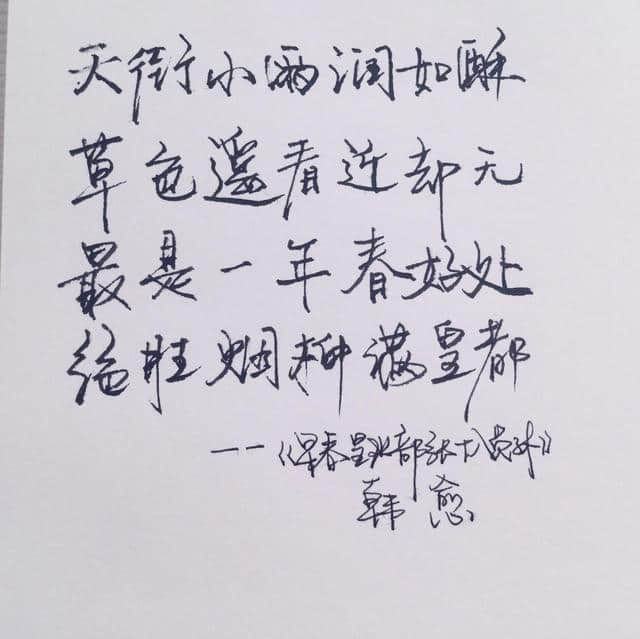 天街小雨润如酥
草色遥看近却无
最是一年春好处
绝胜烟柳满皇都
——《早春呈水部张十八员外》
韩愈